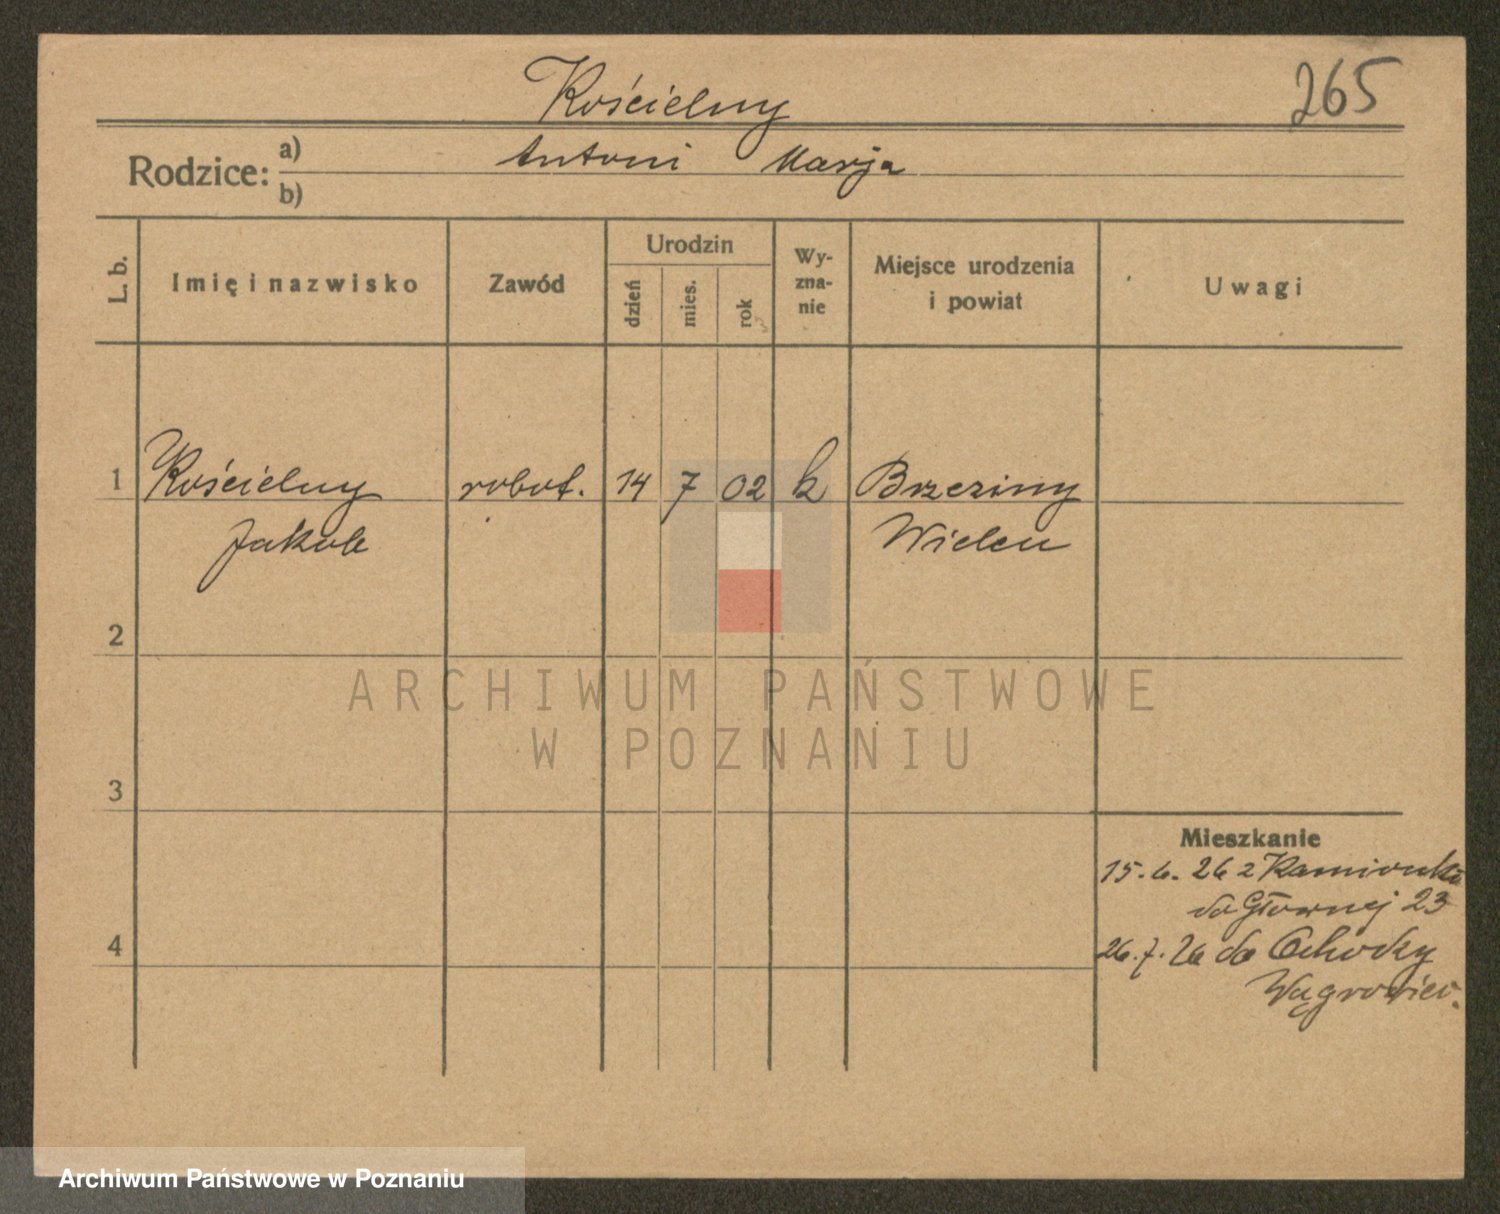 Kościelny
265
Rodzice: a) Antoni Marja
b)
L. b.
Imię i nazwisko
Zawód
Urodzin
dzień
mies.
rok
Wy-
zna-
nie
Miejsce urodzenia
i powiat
Uwagi
1 Kościelny robot. 14 7 02 k Brzeziny
Jakob Wieleń
2
ARCHIWUM PAŃSTWOWE
W POZNANIU
3
Mieszkanie
15. 6. 26 z Kamionki
do Głownej 23
4
26. 7. 26 do
Wągrowiec.
Archiwum Państwowe w Poznaniu